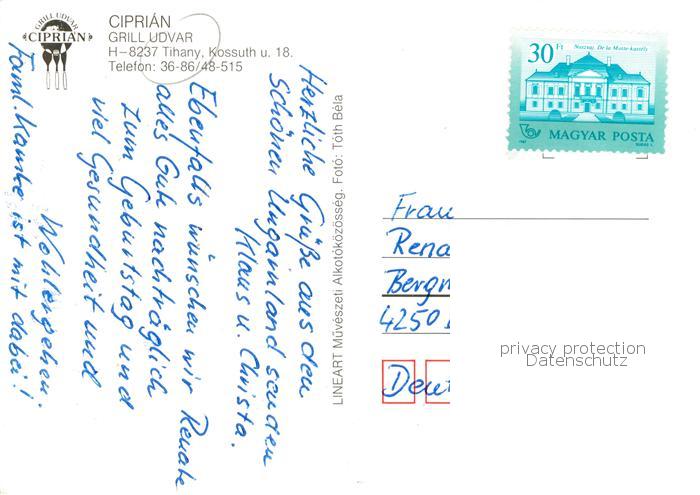 GRILL UDVAR
CIPRIÁN
CIPRIÁN
GRILL UDVAR
H–8237 Tihany, Kossuth u. 18.
Telefón: 36-86/48-515
Herzliche Grüße aus dem
schönen Ungarnland senden
Klaus u. Christa.
Ebenfalls wünschen wir Renate
alles Gute nachträglich
zum Geburtstag und
viel Gesundheit und
Wohlergehen.
Faml. ist mit dabei!
LINEART Művészeti Alkotóközösség. Fotó: Tóth Béla
30 Ft
Noszvaj, De la Motte-kastély
MAGYAR POSTA
1987
Frau
Rena
Berg
4250
Deut
privacy protection
Datenschutz